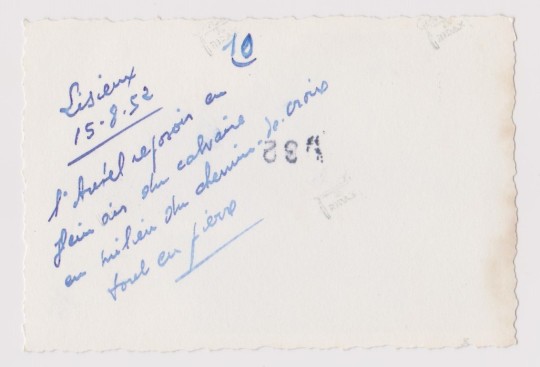 10
Lisieux
15-8-52
l'Autel reposoir en
plein air du calvaire
au milieu du chemin-de-croix
tout en pierre
432